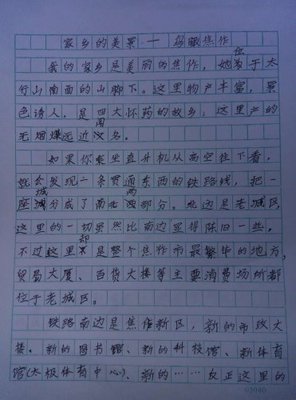 家乡的美景——鸟瞰焦作
我的家乡是美丽的焦作，她位于太
行山南面的山脚下。这里物产丰富，景
色诱人，是四大怀药的故乡；这里产的
无烟煤远近闻名。
如果你乘坐直升机从高空往下看，
就会发现一条贯通东西的铁路线，把一
座城分成了南北两部分。北边是老城区
这里的一切虽然比南边显得陈旧一些，
不过这里却是整个焦作市最繁华的地方，
贸易大厦、百货大楼等主要消费场所都
位于老城区。
铁路南边是焦作新区，新的市政大
楼、新的图书馆、新的科技馆、新体育
馆(太极体育中心)、新的……反正这里的